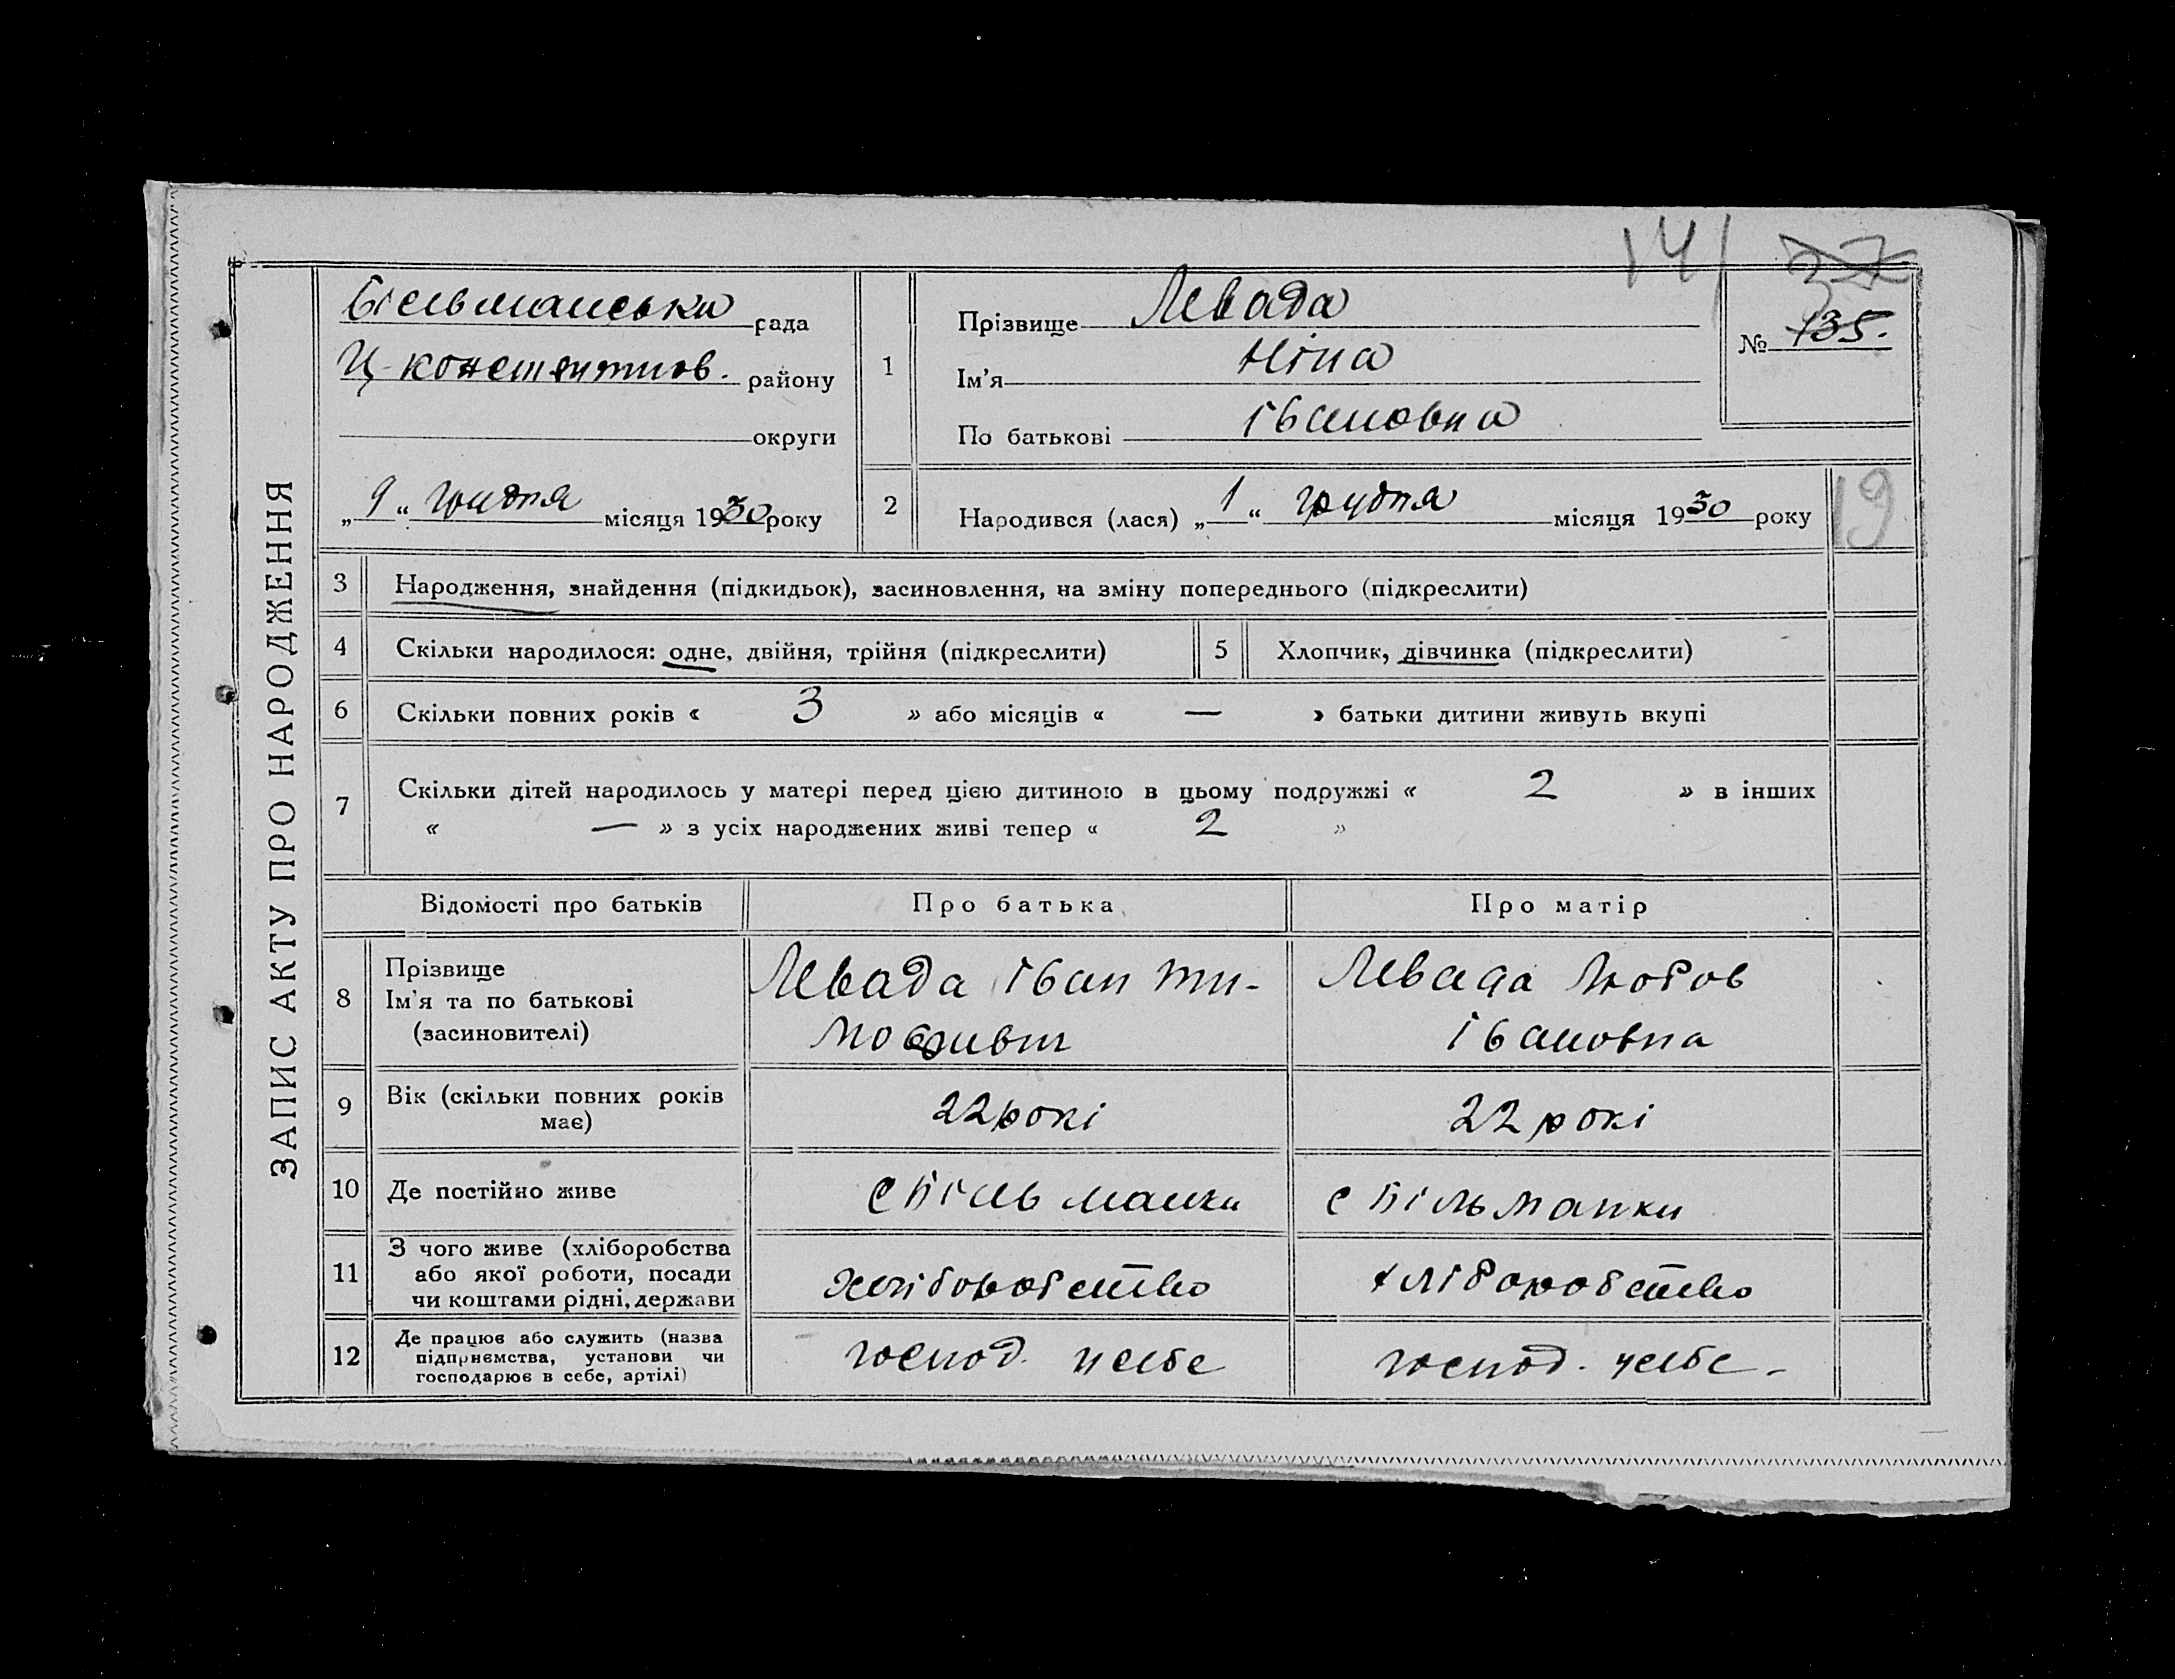 141 37
ЗАПИС АКТУ ПРО НАРОДЖЕННЯ
Більманська рада
Ц-констентинов. району
округи
„9“ грудня місяця 1930 року
1
Прізвище Левада
Ім’я Ніна
По батькові Івановна
№ 135.
2
Народився (лася) „1“ грудня місяця 1930 року
19
3 Народження, знайдення (підкидьок), засиновлення, на зміну попереднього (підкреслити)
4 Скільки народилося: одне, двійня, трійня (підкреслити)
5 Хлопчик, дівчинка (підкреслити)
6 Скільки повних років « 3 » або місяців « — » батьки дитини живуть вкупі
7 Скільки дітей народилось у матері перед цією дитиною в цьому подружжі « 2 » в інших
« — » з усіх народжених живі тепер « 2 »
Відомості про батьків Про батька Про матір
8 Прізвище
Ім’я та по батькові
(засиновителі)
Левада Іван Ти-
Левада Любов
Івановна
9 Вік (скільки повних років
має)
22 рокі
22 рокі
10 Де постійно живе
с Більманки
с Більманки
11 З чого живе (хліборобства
або якої роботи, посади
чи коштами рідні, держави
хліборобство
хліборобство
12 Де працює або служить (назва
підприємства, установи чи
господарює в себе, артілі)
господ. усебе
господ. усебе -